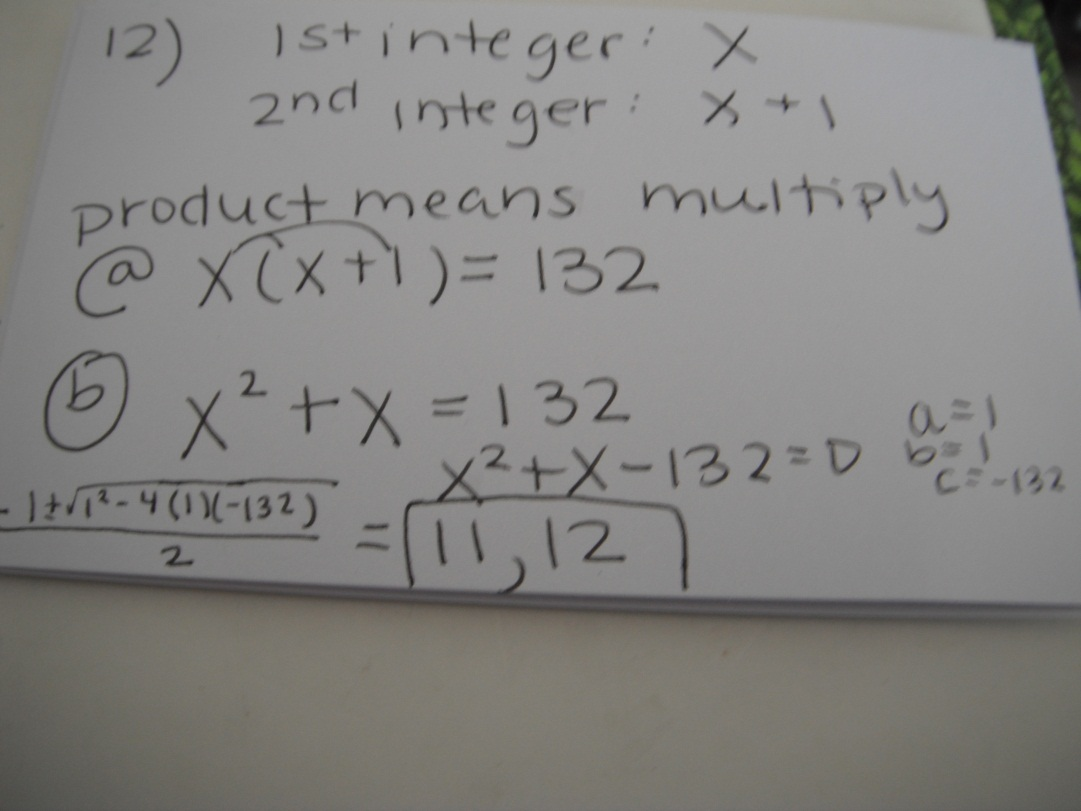 12) 1st integer: x
2nd integer: x + 1
product means multiply
(a) x(x+1) = 132
(b) x² + x = 132
x² + x - 132 = 0
a = 1
b = 1
c = -132
-1±√1² - 4(1)(-132)
2
= 11, 12